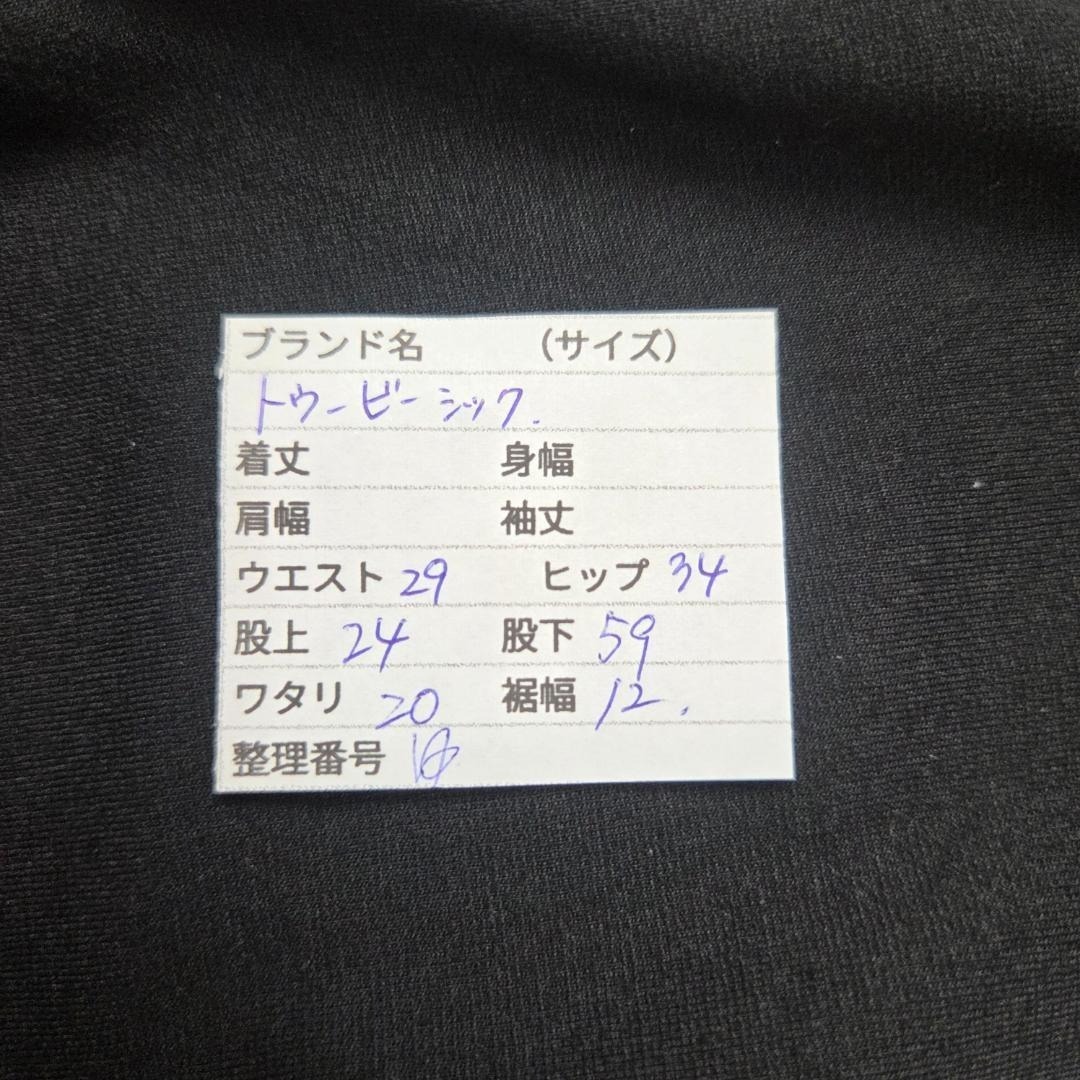 ブランド名 （サイズ）
トゥービーシック.
着丈 身幅
肩幅 袖丈
ウエスト 29 ヒップ 34
股上 24 股下 59
ワタリ 20 裾幅 12.
整理番号